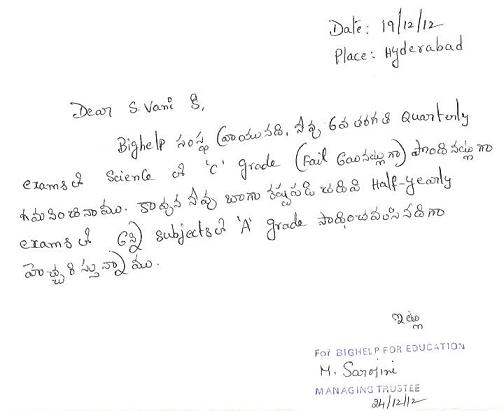 Date: 19/12/12
Place: Hyderabad
Dear S. Vani కి,
Bighelp సంస్థ వ్రాయునది, నీవు 6వ తరగతి Quarterly
exams లో Science లో 'C' grade (Fail అయినట్లుగా) పొందినట్లుగా
గమనించినాము. కావున నీవు బాగా కష్టపడి చదివి Half-yearly
exams లో అన్ని subjects లో 'A' grade సాధించవలసినదిగా
హెచ్చరిస్తున్నాము.
ఇట్లు
For BIGHELP FOR EDUCATION
M. Sarojini
MANAGING TRUSTEE
24/12/12